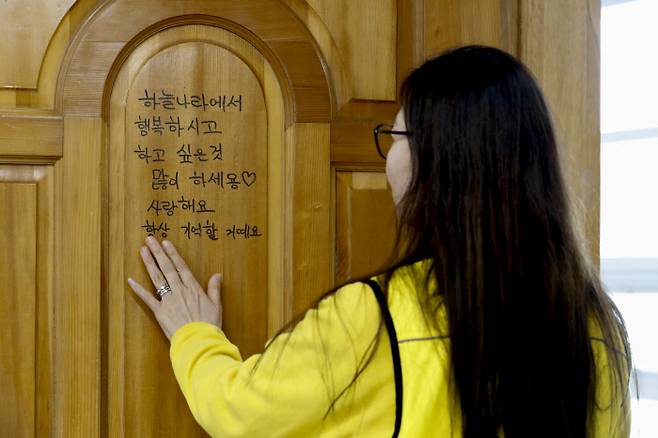 하늘나라에서
행복하시고
하고 싶은것
많이 하세용♡
사랑해요
항상 기억할 거예요